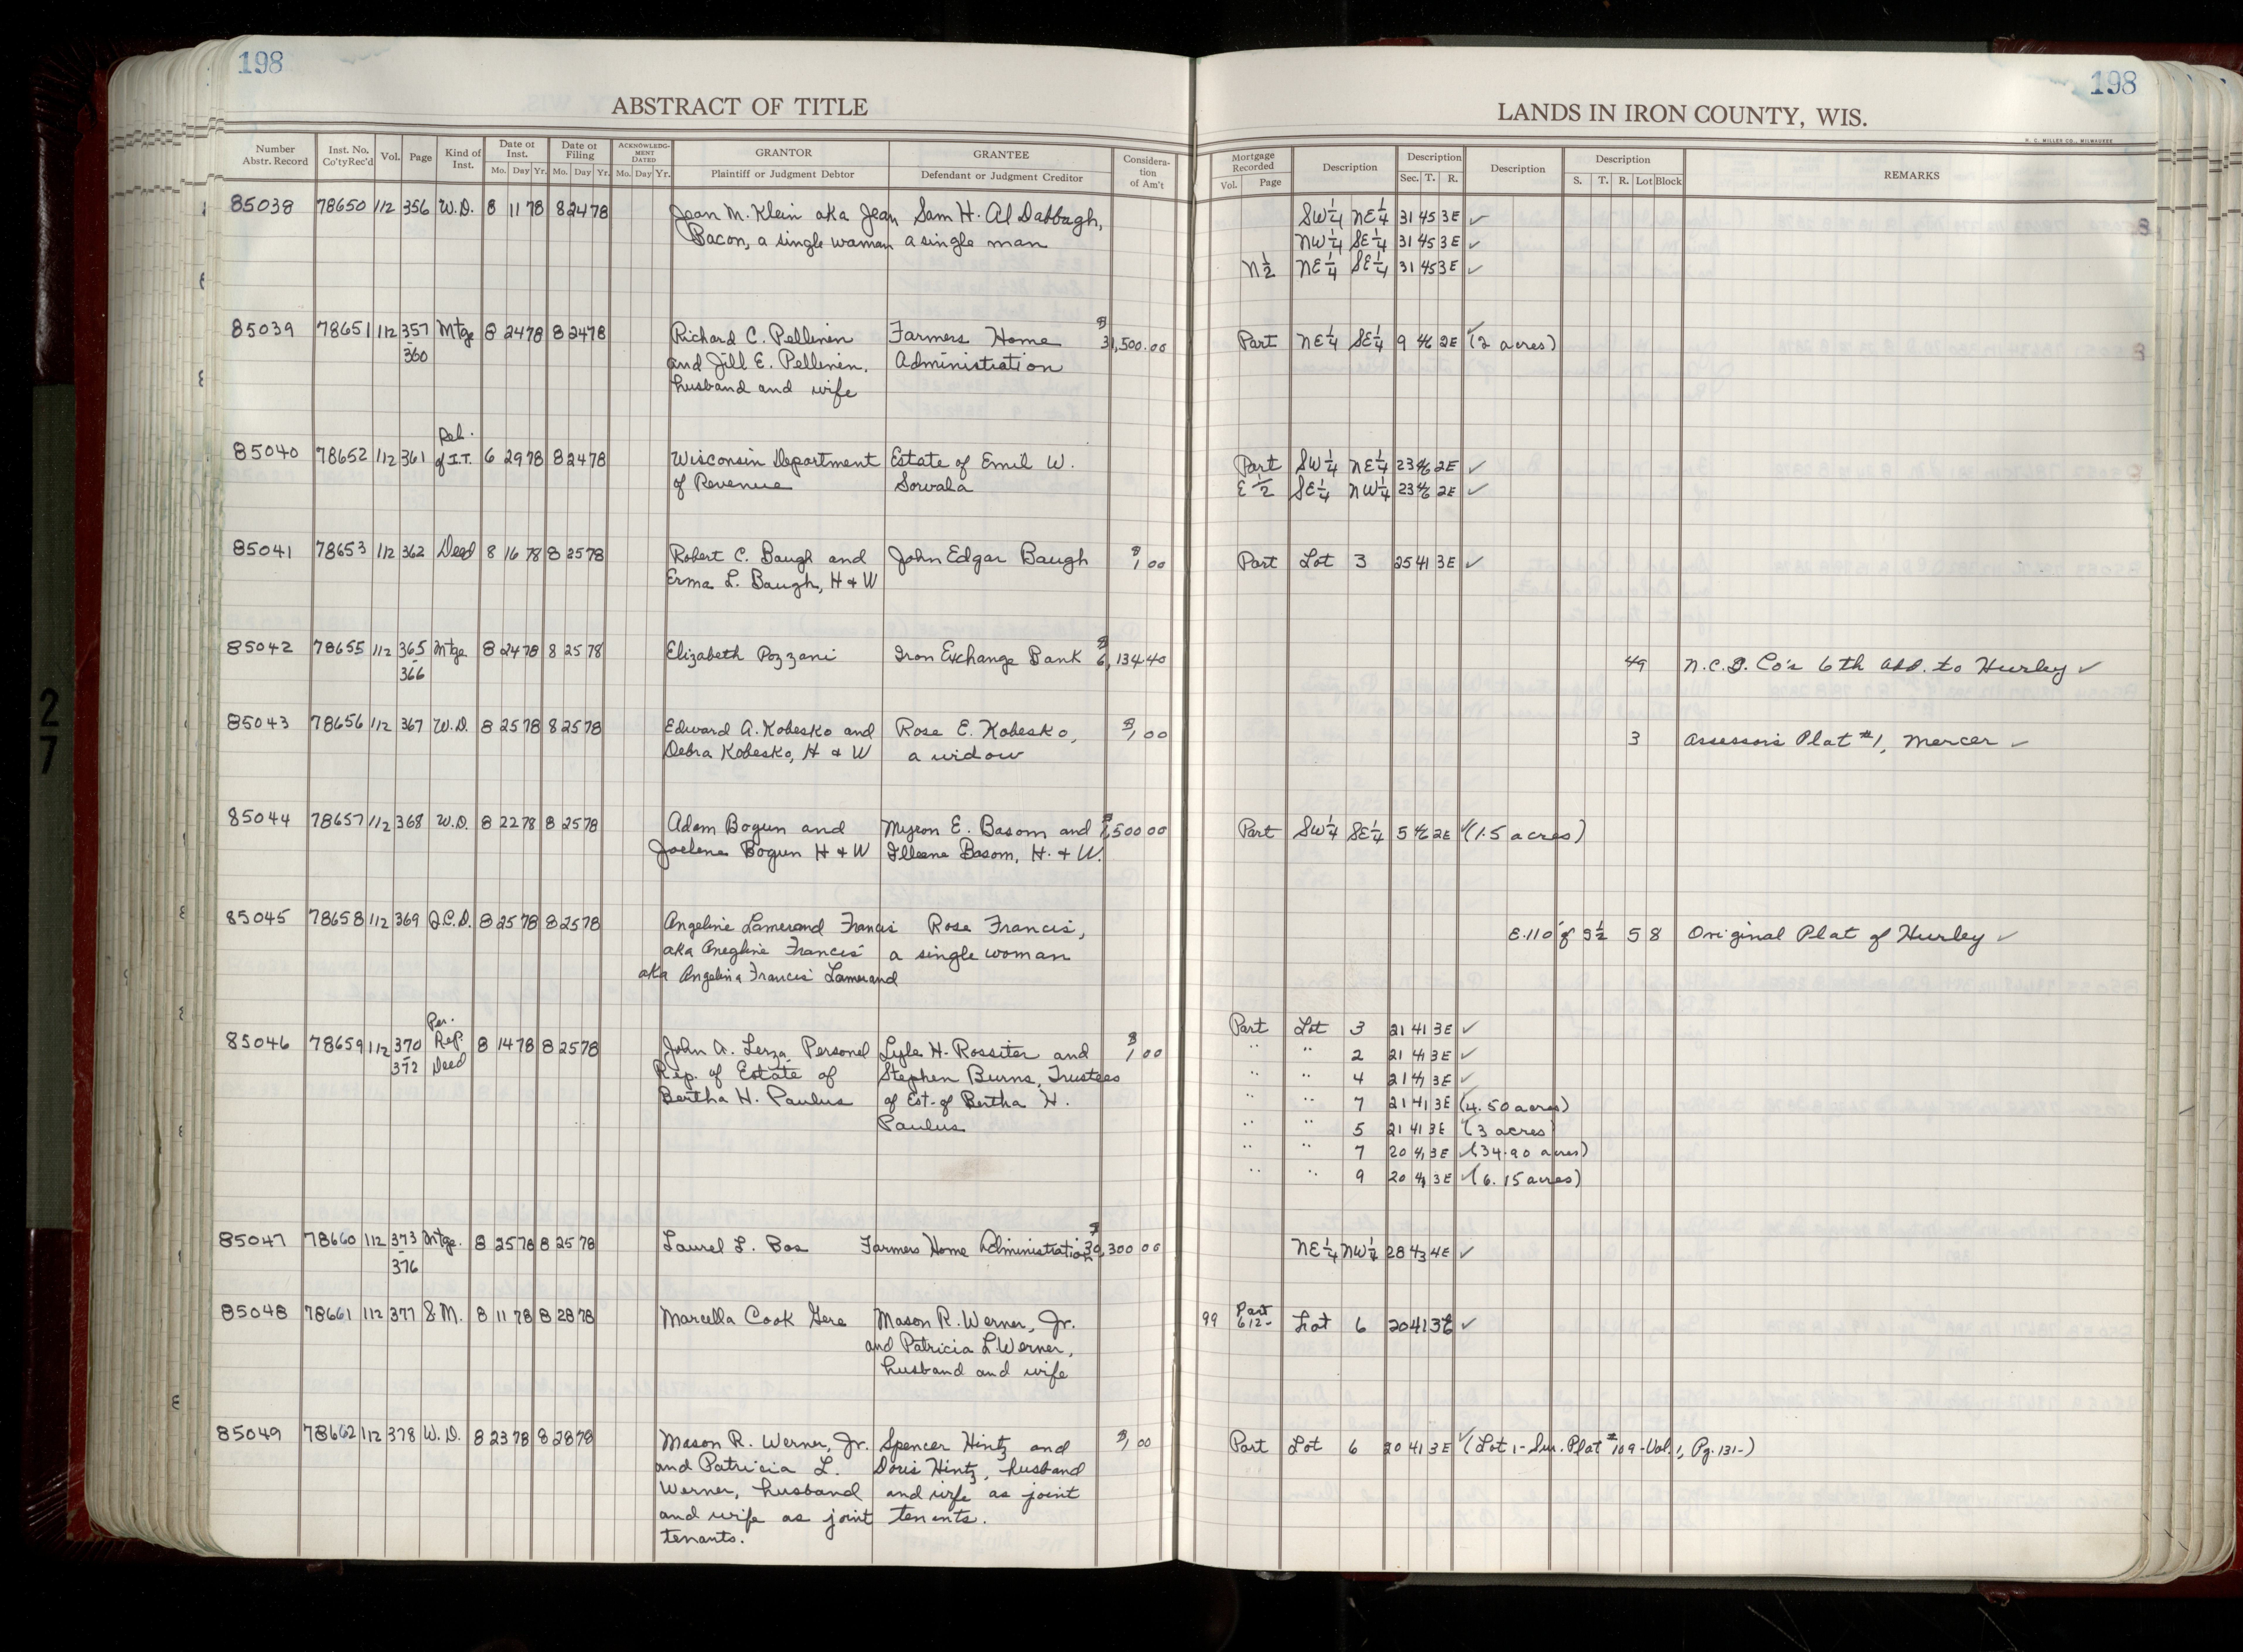 198
198
ABSTRACT OF TITLE
LANDS IN IRON COUNTY, WIS.
H. C. MILLER CO., MILWAUKEE
Number Abstr. Record | Inst. No. Co'ty Rec'd | Vol. | Page | Kind of Inst. | Date of Inst. Mo. Day Yr. | Date of Filing Mo. Day Yr. | ACKNOWLEDGMENT DATED Mo. Day Yr. | GRANTOR Plaintiff or Judgment Debtor | GRANTEE Defendant or Judgment Creditor | Consideration of Am't | Mortgage Recorded Vol. Page | Description | Description Sec. T. R. | Description | Description S. T. R. Lot Block | REMARKS
85038 78650 112 356 W.D. 8 11 78 8 24 78 Jean M. Klein aka Jean Sam H. Al Dabbagh, SW¼ NE¼ 31 45 3E ✓
Bacon, a single woman a single man NW¼ SE¼ 31 45 3E ✓
N½ NE¼ SE¼ 31 45 3E ✓
85039 78651 112 357 Mtge 8 24 78 8 24 78 Richard C. Pellinen Farmers Home $31,500.00 Part NE¼ SE¼ 9 46 2E ✓ (2 acres)
-360 and Jill E. Pellinen, Administration
husband and wife
Rel.
85040 78652 112 361 of I.T. 6 29 78 8 24 78 Wisconsin Department Estate of Emil W. Part SW¼ NE¼ 23 46 2E ✓
of Revenue Sorvala E½ SE¼ NW¼ 23 46 2E ✓
85041 78653 112 362 Deed 8 16 78 8 25 78 Robert C. Baugh and John Edgar Baugh $1 00 Part Lot 3 25 41 3E ✓
Erma L. Baugh, H & W
85042 78655 112 365 Mtge 8 24 78 8 25 78 Elizabeth Pozzani Iron Exchange Bank $6,134.40 49 N.C.D. Co's 6th Add. to Hurley ✓
-366
85043 78656 112 367 W.D. 8 25 78 8 25 78 Edward A. Kobesko and Rose E. Kobesko, $1 00 3 Assessor's Plat #1, Mercer ✓
Debra Kobesko, H & W a widow
85044 78657 112 368 W.D. 8 22 78 8 25 78 Adam Bogun and Myron E. Basom and 500 00 Part SW¼ SE¼ 5 46 2E ✓ (1.5 acres)
Joelene Bogun H & W Illeene Basom, H. & W.
85045 78658 112 369 Q.C.D. 8 25 78 8 25 78 Angeline Lamerand Francis Rose Francis, E.110' of S½ 5 8 Original Plat of Hurley ✓
aka Anegline Francis a single woman
aka Angelina Francis Lamerand
Per.
85046 78659 112 370 Rep. 8 14 78 8 25 78 John A. Leiza Personal Lyle H. Rossiter and $1 00 Part Lot 3 21 41 3E ✓
-372 Deed Rep. of Estate of Stephen Burns, Trustees " " 2 21 41 3E ✓
Bertha H. Paulus of Est. of Bertha H. " " 4 21 41 3E ✓
Paulus " " 7 21 41 3E (4.50 acres)
" " 5 21 41 3E ✓ (3 acres)
" " 7 20 41 3E ✓ (34.90 acres)
" " 9 20 41 3E ✓ (6.15 acres)
85047 78660 112 373 Mtge. 8 25 78 8 25 78 Laurel L. Bos Farmers Home Administration 300 00 NE¼ NW¼ 28 43 4E ✓
-376
85048 78661 112 377 S.M. 8 11 78 8 28 78 Marcella Cook Gere Mason R. Werner, Jr. 99 Part 612- Lot 6 20 41 3E ✓
and Patricia L. Werner,
husband and wife
85049 78662 112 378 W.D. 8 23 78 8 28 78 Mason R. Werner, Jr. Spencer Hintz and $1 00 Part Lot 6 20 41 3E ✓ (Lot 1- Sur. Plat #109-Vol. 1, Pg. 131-)
and Patricia L. Doris Hintz, husband
Werner, husband and wife as joint
and wife as joint tenents.
tenants.
27